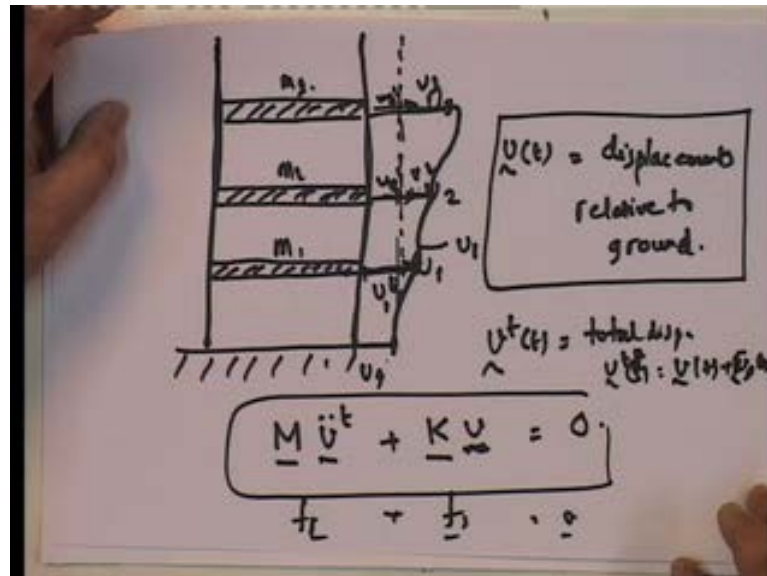 m3.
m2
m1
2
U1
U1
Ug
U(t) = displacements
relative to
ground.
U^t(t) = total disp.
M Ü^t + K U = 0.
fI + fs = 0